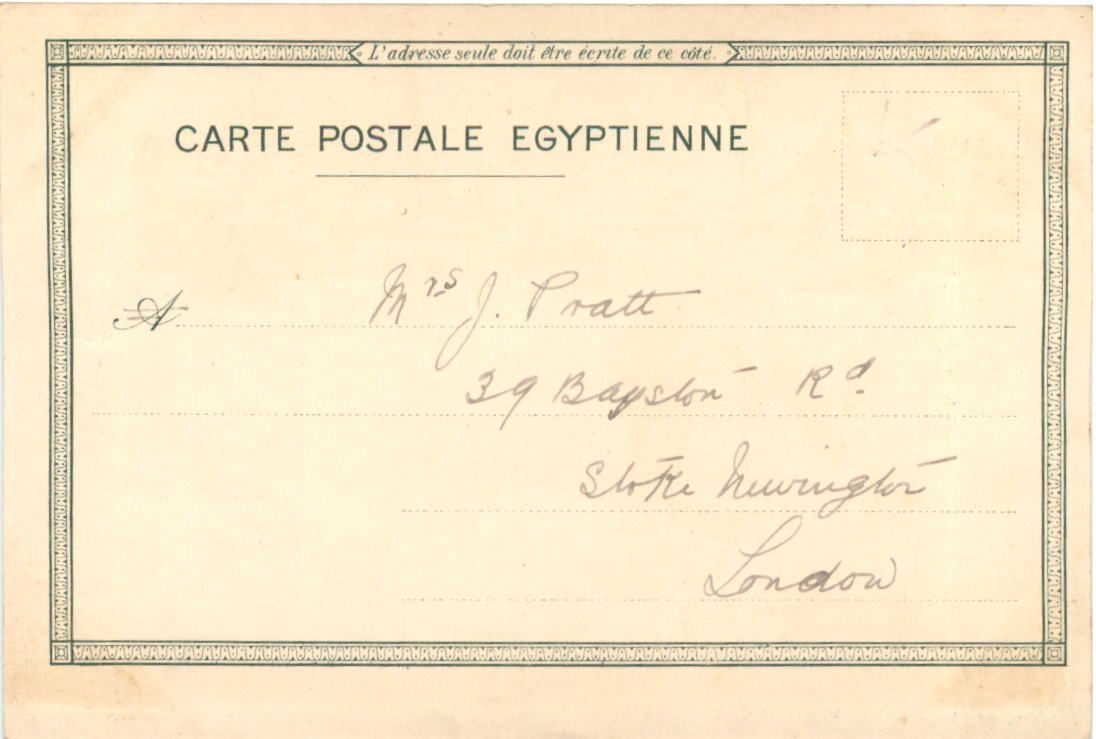 L'adresse seule doit être écrite de ce côté.
CARTE POSTALE EGYPTIENNE
A
Mrs J. Pratt
39 Bayston Rd.
Stoke Newington
London